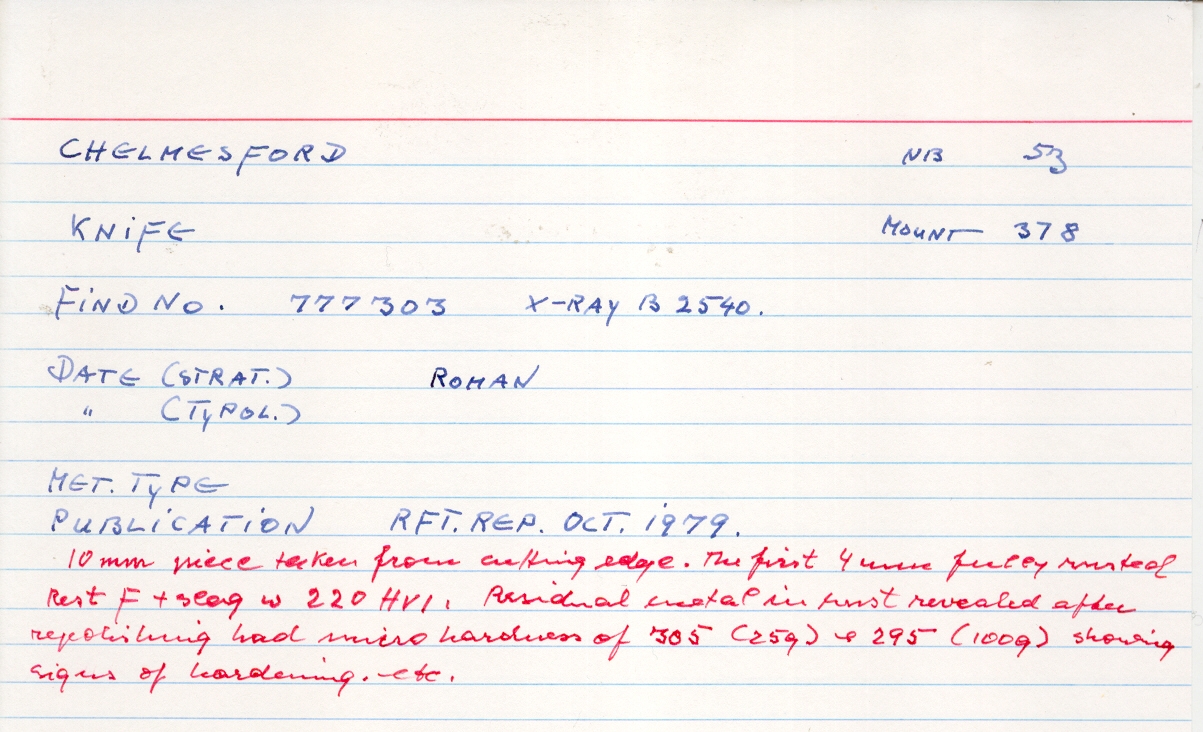 CHELMESFORD NB 53
KNIFE MOUNT 378
FIND NO. 777303 X-RAY B 2540.
DATE (STRAT.) ROMAN
" (TYPOL.)
MET. TYPE
PUBLICATION RFT. REP. OCT. 1979.
10 mm piece taken from cutting edge. The first 4 mm fully rusted
Rest F + slag 220 HV1. Residual metal in rust revealed after
repolishing had micro hardness of 305 (25g) & 295 (100g) showing
signs of hardening. etc.